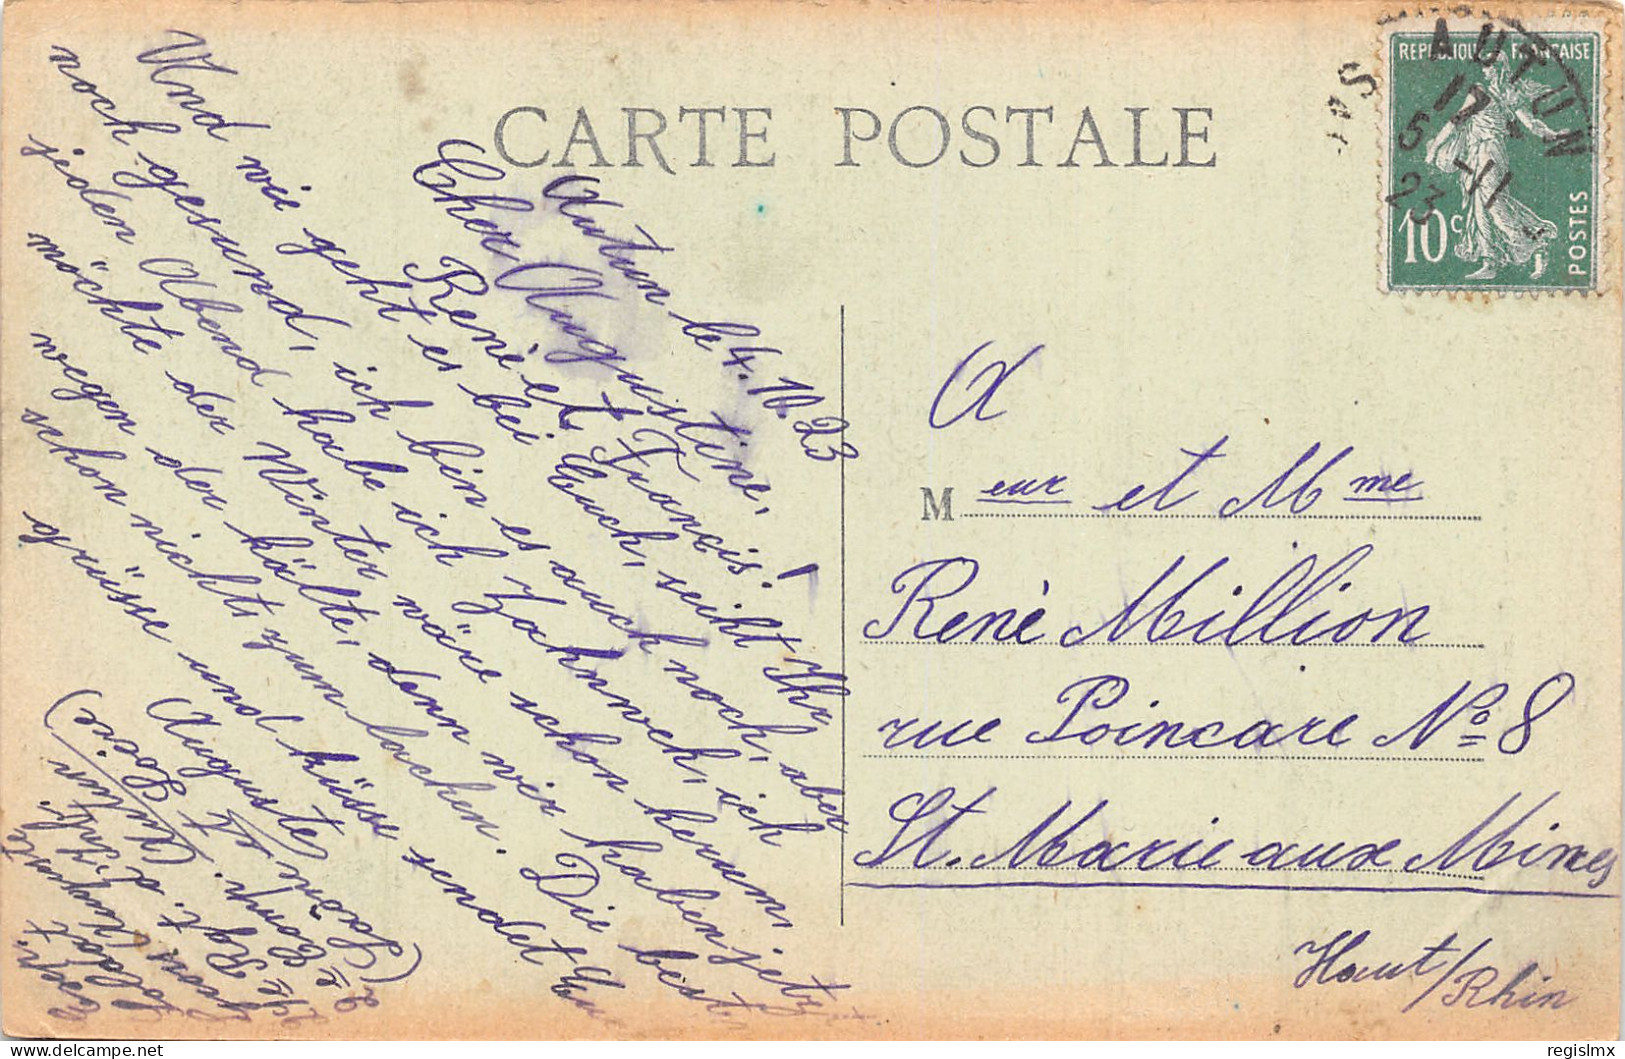 CARTE POSTALE
REPUBLIQUE FRANÇAISE
10c
POSTES
AUTUN
17
5 -11
23
Autun le 4.10.23
Cher Augustine,
René et Francis!
Und wie geht es bei Euch, seiht Ihr
noch gesund, ich bin es auch noch, aber
jeden Abend habe ich Zahnweh, ich
möchte der Winter wäre schon herum,
wegen der kälte, denn wir haben jetzt
schon nichts zum lachen. Die besten
grüsse und küsse sendet Euch
Auguste
(Saône et Loire)
Autun
Exp:
Soldat
A
Meur et Mme
Renè Million
rue Poincare No 8
St. Marie aux Mines
Haut/Rhin
regislmx